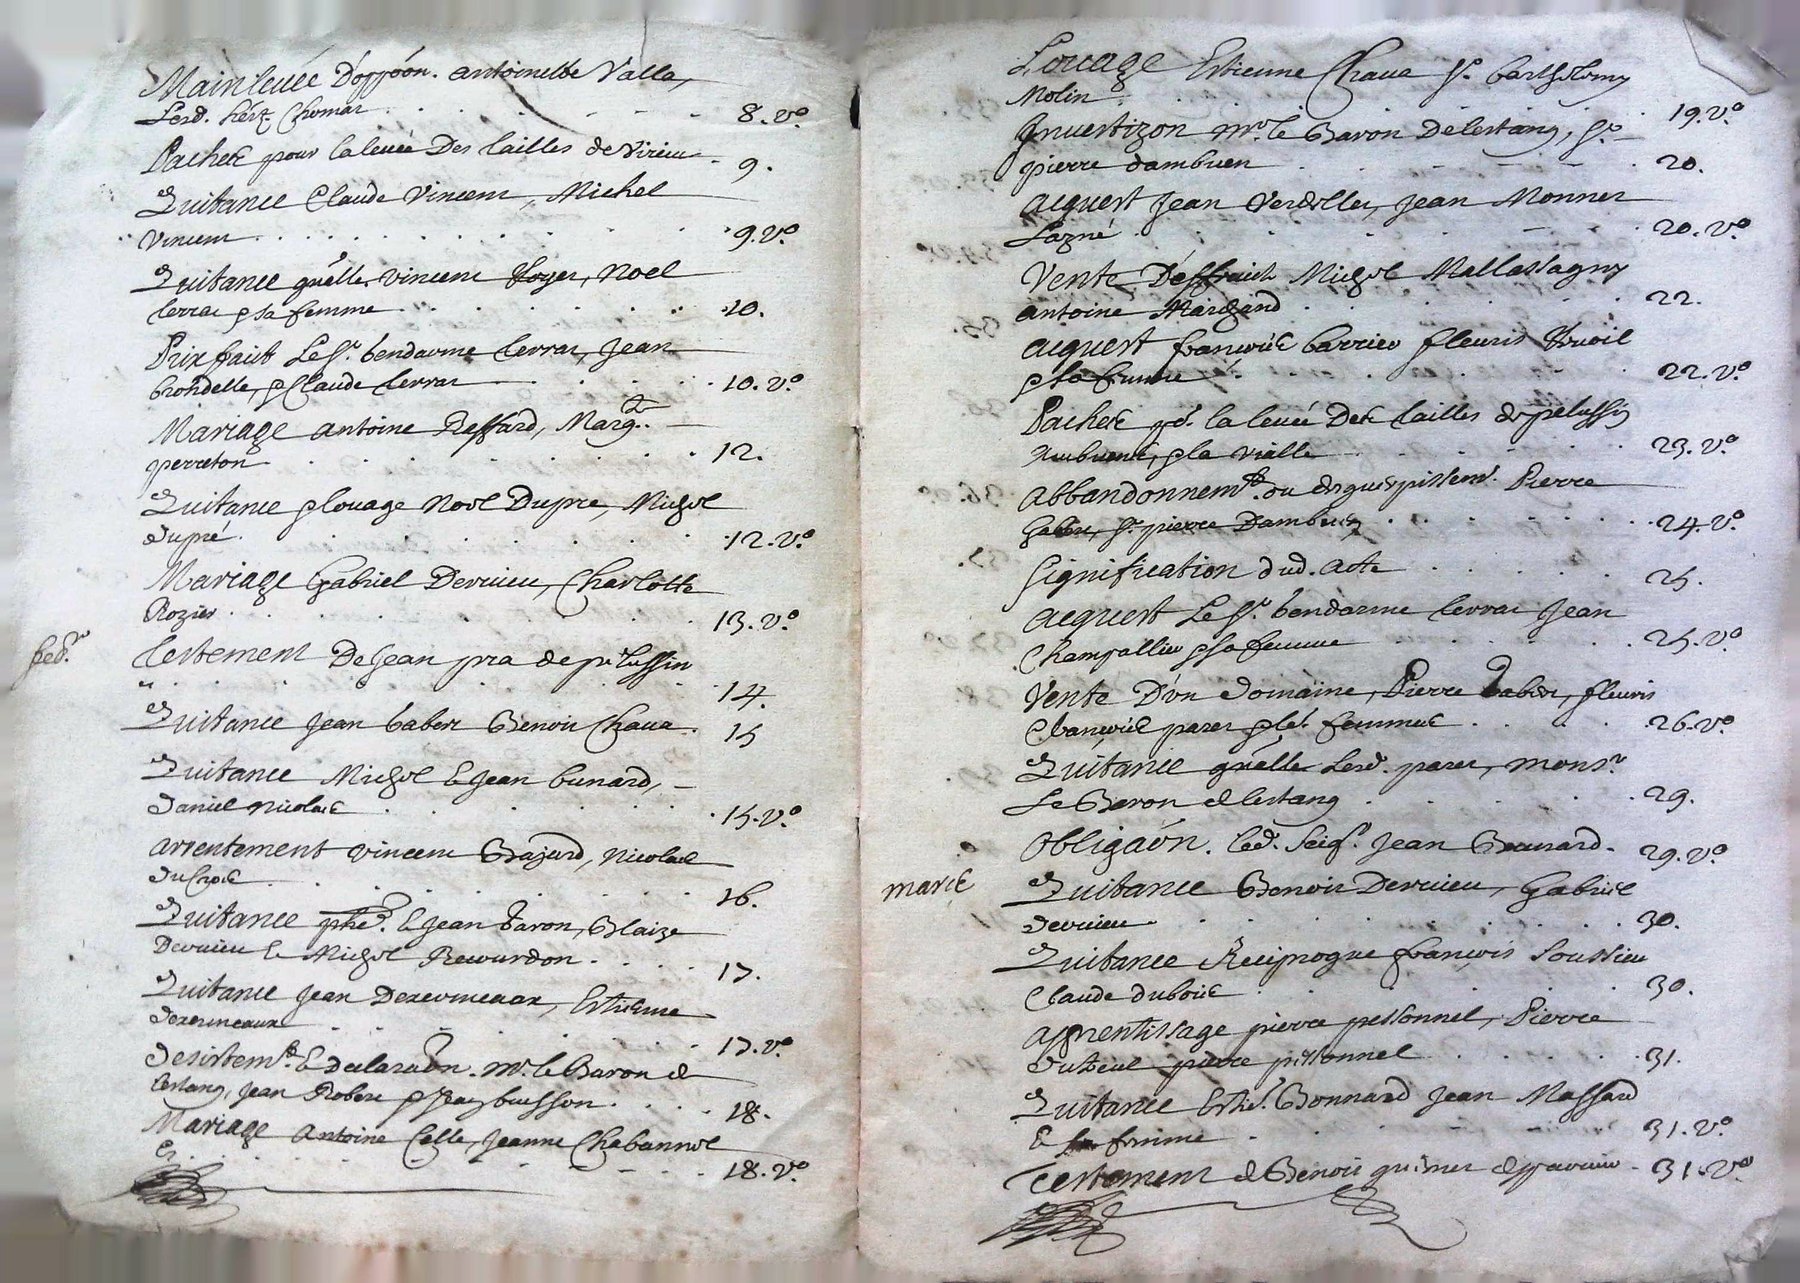 Mainleuée D'oppōon. Antoinette Valla,
Lesd. hér. Chomar 8. v°.
Pacherie pour la leuée Des tailles de Virieu 9.
Quitance Claude Vincent, Michel
Vincent 9. v°.
Quitance qu'elle. Vincent Royer, Noel
terras & sa femme 10.
Prix fait Le Sr. bendarme terras, Jean
brondelle, & Claude terras 10. v°.
Mariage Antoine Reffard, Marg.te
perreton 12.
Quitance & louage Noel Dupre, Michel
dupré. 12. v°.
Mariage Gabriel Dervieu, Charlotte
Rozier 13. v°.
Testement De Jean pra de pelussin
14.
Quitance Jean baber Benoit Chaua 15
Quitance Michel & Jean bunard,
Daniel Nicolas 15. v°.
Arrentement Vincent Bajard, Nicolas
16.
Quitance phe. & Jean Varon, Blaize
Dervieu & Michel Recourdon 17.
Quitance Jean Dezermeaux, Estienne
Dezermeaux 17. v°.
Desistem.t & declaraōn. Mr. le Baron de
lestang, Jean Robert & buisson 18.
Mariage Antoine Celle, Jeanne Chabannol
18. v°.
Louage Estienne Chaua Sr. bartholomy
Molin 19. v°.
Inuestizon Mr. le Baron De lestang, Sr.
pierre dambuen 20.
Acquest Jean Verdellet, Jean Monner
Lazné 20. v°.
Vente D'effruict Michel Mallassagny
Antoine Marchand 22.
Acquest françois barrieu fleuris
& sa femme 22. v°.
Pacherie pr. la leuée Des tailles de pelussin
& la Vialle 23. v°.
Abbandonnem.t ou deguerpissemt. Pierre
Sr. pierre Dambuen 24. v°.
Signification dud. Acte 25.
Acquest Le Sr. bendarme terras Jean
Champallier & sa femme 25. v°.
Vente D'un Domaine, Pierre baber, fleuris
& françois parer & les femmes 26. v°.
Quitance qu'elle Lesd. parer, Monsr.
Le Baron de lestang 29.
Obligaōn. led. Seigr. Jean Bunard. 29. v°.
marie Quitance Benoit Dervieu, Gabriel
Dervieu 30.
Quitance Reciproque françois soussieu
Claude dubois 30.
Apprentissage pierre pessonnel, Pierre
pierre pessonnel 31.
Quitance Estie. Bonnard Jean Massard
& sa femme 31. v°.
Testement de Benoit de pavezin 31. v°.